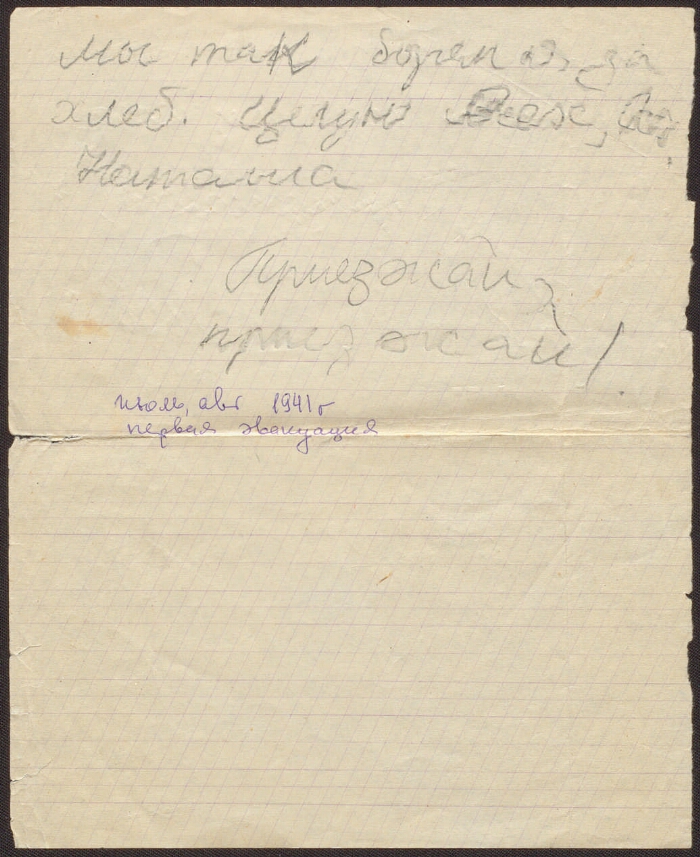 мы так боремся за
хлеб. Целую Всех,
Наташа
Приезжай,
приезжай!
июль, авг 1941г
первая эвакуация